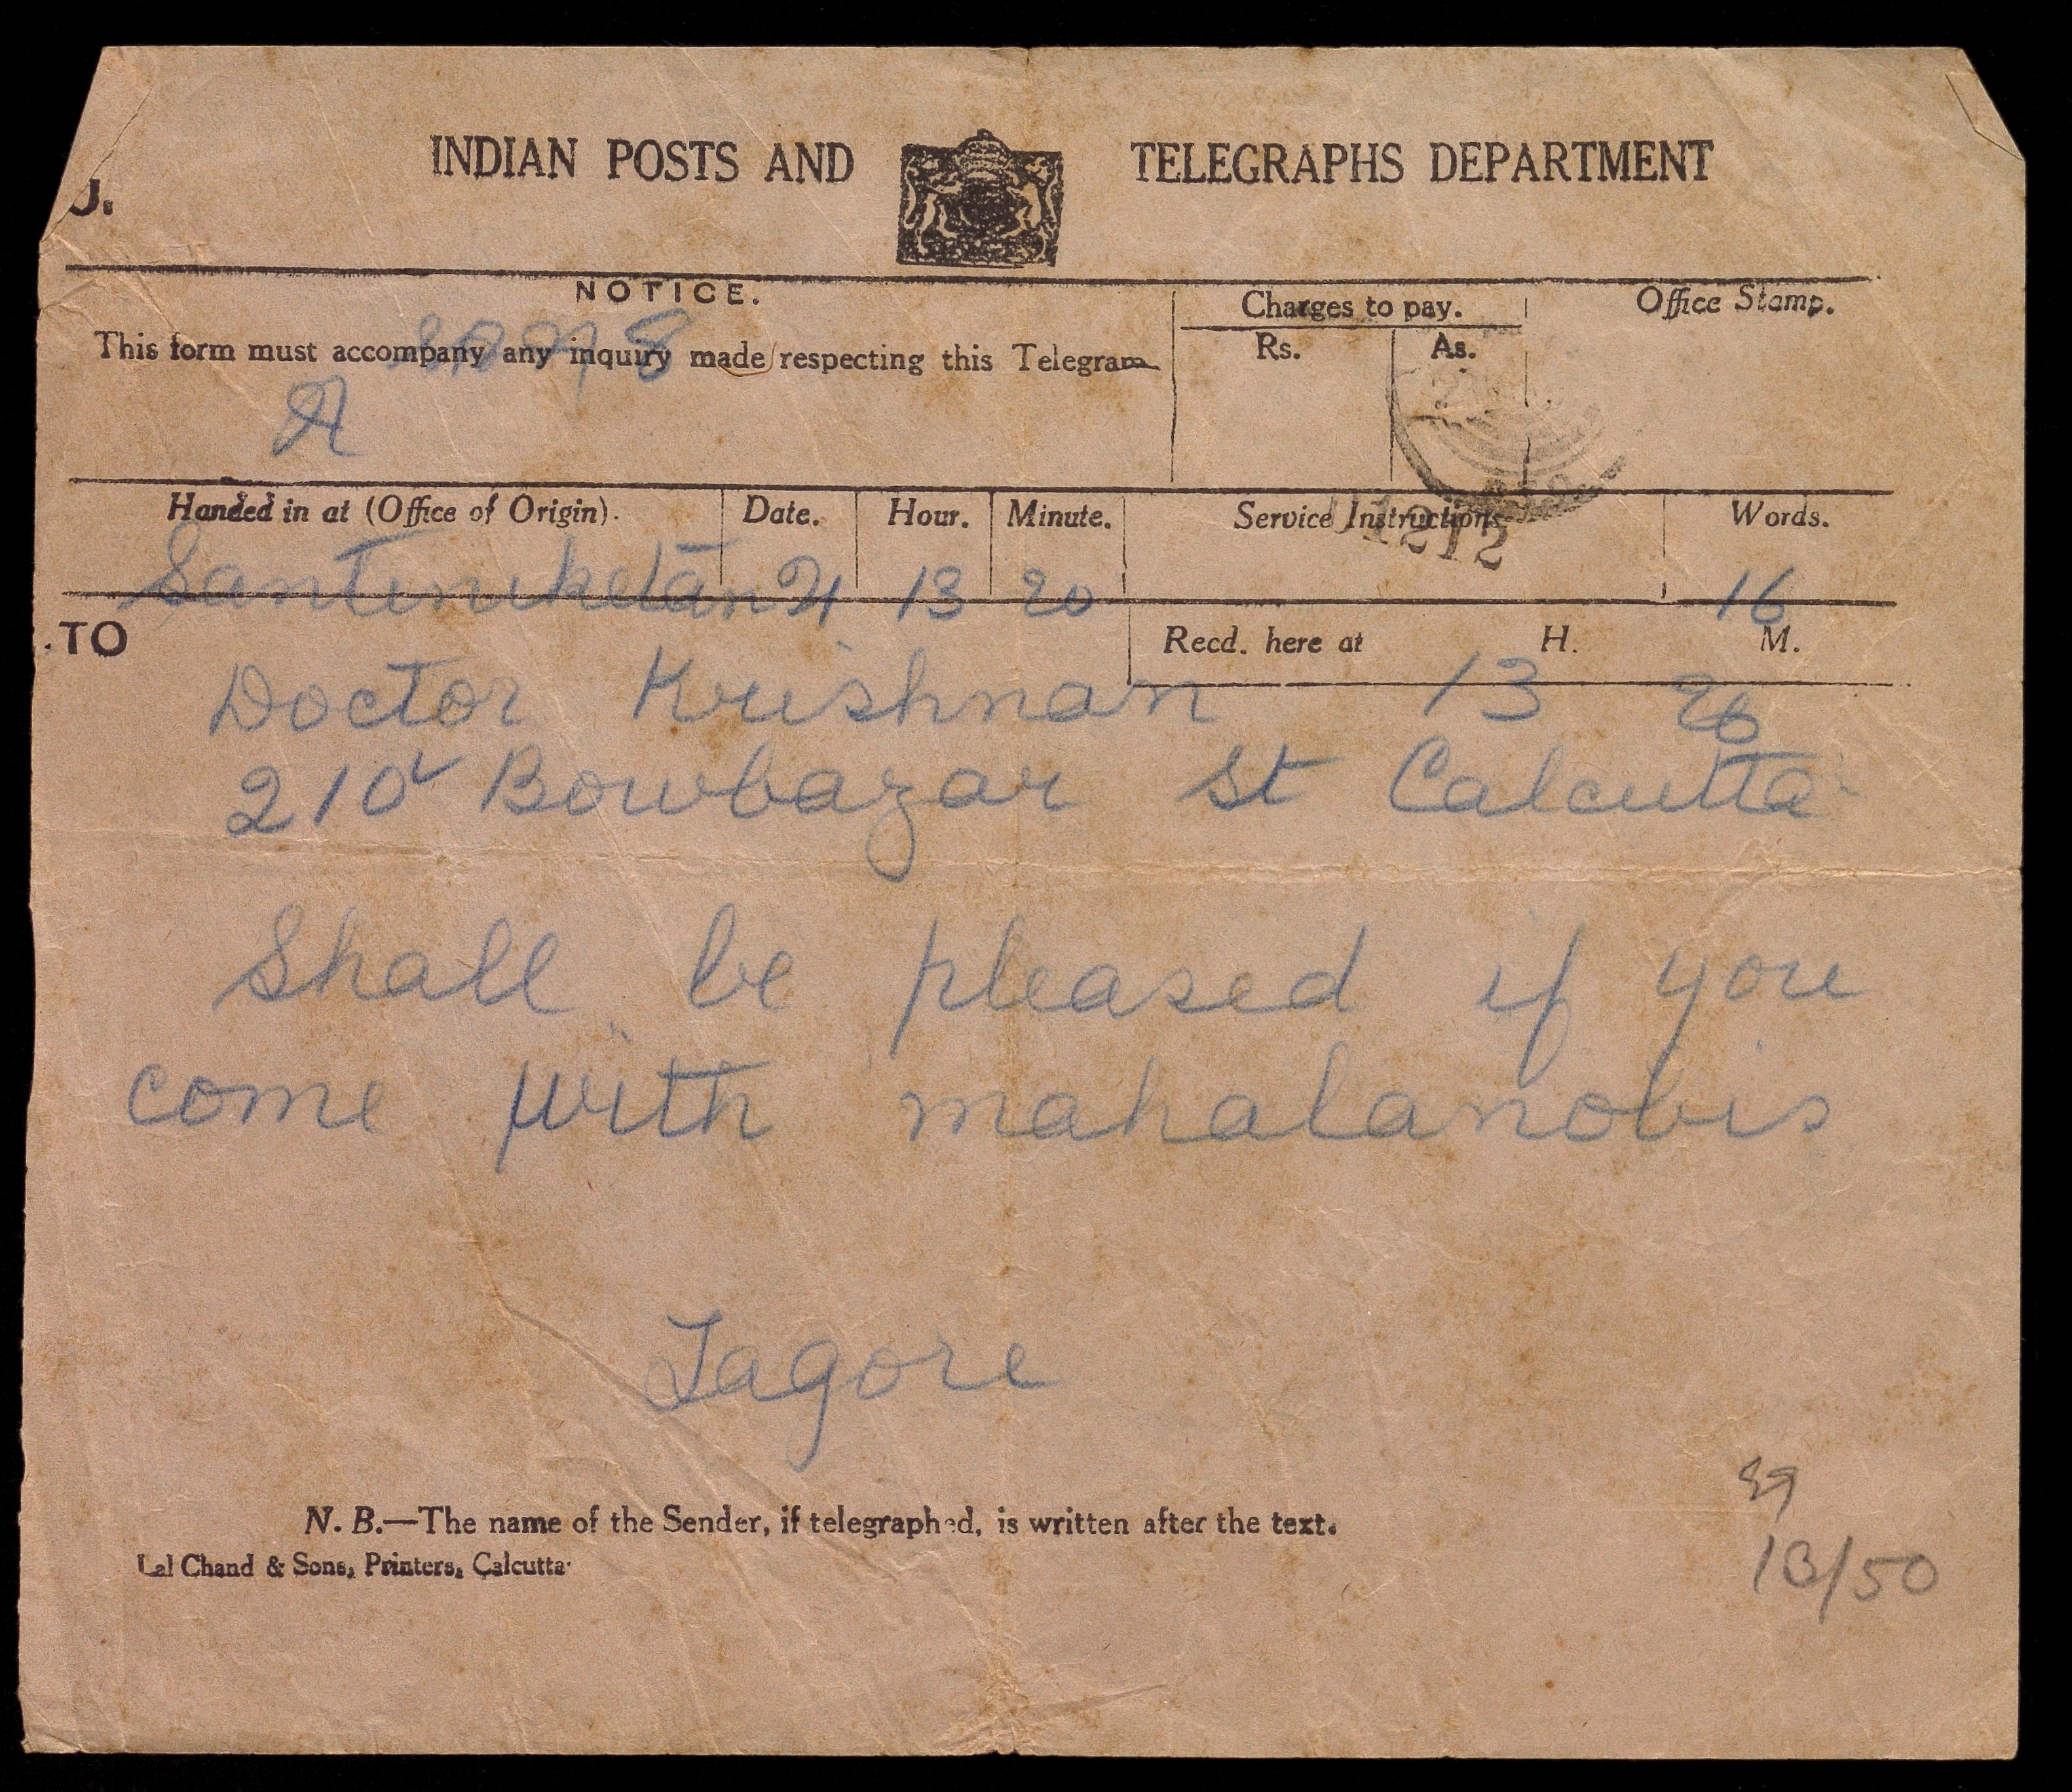 INDIAN POSTS AND TELEGRAPHS DEPARTMENT
J.
NOTICE.
This form must accompany any inquiry made respecting this Telegram.
Charges to pay.
Rs. As.
Office Stamp.
Handed in at (Office of Origin). Date. Hour. Minute. Service Instructions. Words.
1212
Santiniketan 21 13 20 16
TO
Recd. here at H. M.
Doctor Krishnan 13 26
210 Bowbazar St Calcutta
Shall be pleased if you
come with mahalanobis
Tagore
N. B.—The name of the Sender, if telegraphed, is written after the text.
Lal Chand & Sons, Printers, Calcutta
13/50